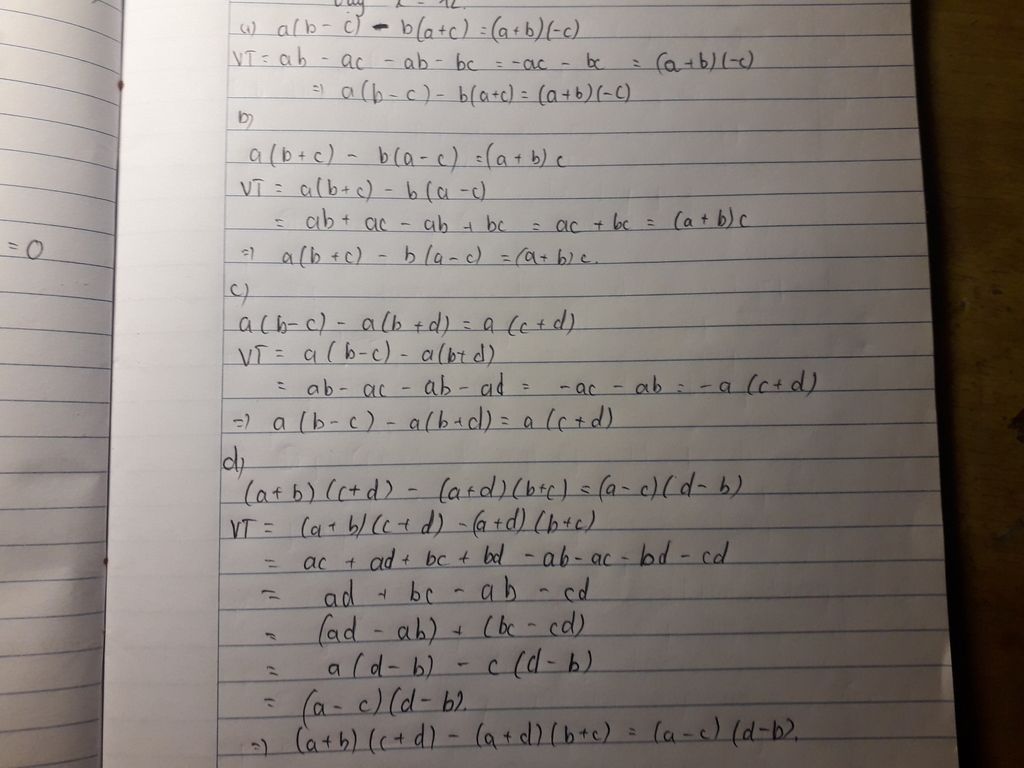 = 0
a) a(b - c) - b(a+c) = (a+b)(-c)
VT = ab - ac - ab - bc = -ac - bc = (a+b)(-c)
=) a(b-c) - b(a+c) = (a+b)(-c)
b)
a(b+c) - b(a-c) = (a+b)c
VT = a(b+c) - b(a-c)
= ab + ac - ab + bc = ac + bc = (a+b)c
=) a(b+c) - b(a-c) = (a+b)c.
c)
a(b-c) - a(b+d) = a(c+d)
VT = a(b-c) - a(b+d)
= ab - ac - ab - ad = -ac - ab = -a(c+d)
=) a(b-c) - a(b+d) = a(c+d)
d)
(a+b)(c+d) - (a+d)(b+c) = (a-c)(d-b)
VT = (a+b)(c+d) - (a+d)(b+c)
= ac + ad + bc + bd - ab - ac - bd - cd
= ad + bc - ab - cd
= (ad - ab) + (bc - cd)
= a(d-b) - c(d-b)
= (a-c)(d-b).
=) (a+b)(c+d) - (a+d)(b+c) = (a-c)(d-b).